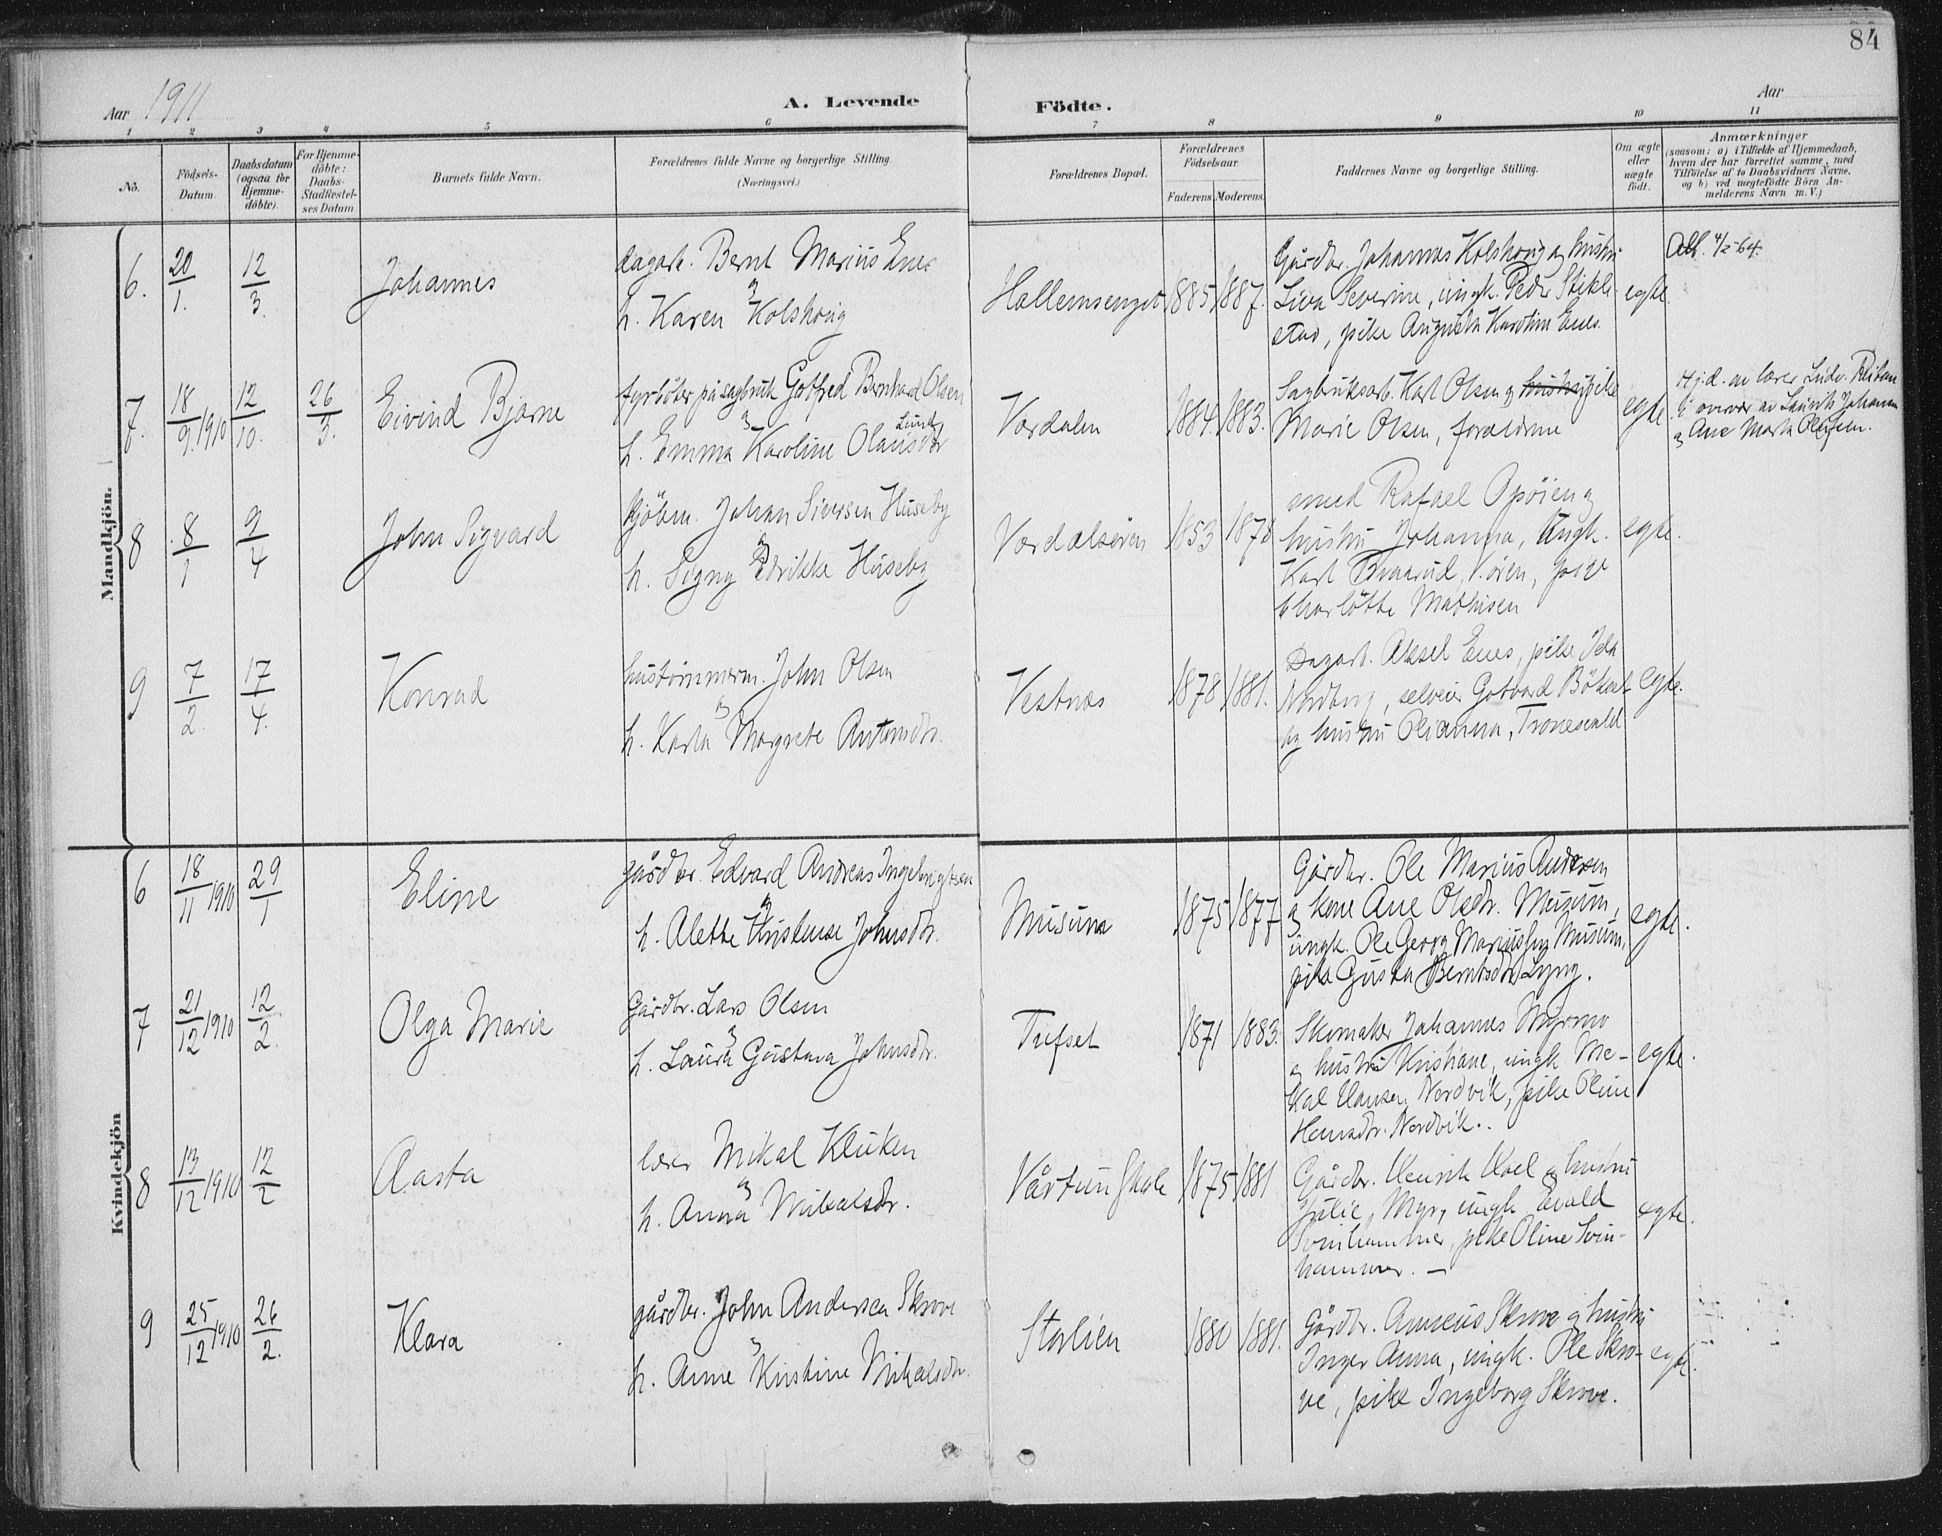 84
Aar 1911
A. Levende
Födte.
Aar
1 2 3 4 5 6 7 8 9 10 11
No.
Födsels-
Datum.
Daabsdatum
(ogsaa for
Hjemme-
döbte).
For Hjemme-
döbte:
Daabs-
Stadfæstel-
ses Datum
Barnets fulde Navn.
Forældrenes fulde Navne og borgerlige Stilling.
(Næringsvei.)
Forældrenes Bopæl.
Forældrenes
Födselsaar.
Faderens. Moderens.
Faddernes Navne og borgerlige Stilling.
Om ægte
eller
uægte
födt.
Anmærkninger
(saasom: a) i Tilfælde af Hjemmedaab,
hvem der har forrettet samme, med
Tilföielse af to Daabsvidners Navne,
og b) ved uægtefödte Börn An-
melderens Navn m. V.)
Mandkjön.
6. 20/1. 12/3. Johannes
dagarb. Bernt Marius Enes
og
h. Karen Kolshoug
Hallemsenget 1885 1887.
Gårdbr. Johannes Kolshoug og hustru
Lina Severine, ungk. Peder Stikle-
stad, pike Augusta Karoline Enes.
egte.
Att. 4/2-64.
7. 18/9.1910 12/10. 26/3. Eivind Bjarne
fyrböter på sagbruk Gotfred Bernhard Olsen
og Lund
h. Emma Karoline Olausdtr
Værdalen 1884. 1883.
Sagbruksarb. Karl Olsen og hustru pike
Marie Olsen, forældrene
egte
Hj.d. av lærer Ludv. Reitan
i overvær av Laurits Johansen
og Ane Marta Olufsen.
8 8/1 9/4 John Sigvard
kjöbm. Johan Siversen Huseby
og
h. Signy Edrikke Huseby
Værdalsören 1853 1878
smed Rafael Opöien og
hustru Johanna, Ungk.
Karl, Ören, pige
Charlotte Mathisen
egte.
9 7/2. 17/4. Konrad
hustömmerm. John Olsen
og
h. Karla Margrete Antonsdtr.
Vestnes 1878 1881.
Dagarb. Aksel Enes, pike Ida
Nordberg, selveier Gotvard
og hustru Olianna, Tronesvald
egte.
Kvindekjön
6 18/11 1910 29/1 Eline
gårdbr. Edvard Andreas Ingebrigtsen
og
h. Alette Kristense Johnsdtr.
Musum 1875 1877
Gårdbr. Ole Marius Andersen
og kone Ane Olsdtr. Musum,
ungk. Ole Georg Mariussen Musum,
pike Gusta Berntsdtr. Lyng.
egte.
7 21/12 1910 12/2. Olga Marie
Gårdbr. Lars Olsen
og
h. Laura Gustava Johnsdtr.
Tufset 1871 1883.
Skomaker Johannes Myrmo
og hustru Kristiane, ungk. Me-
kal Hansen Nordvik, pike Oline
Hansdtr. Nordvik.
egte.
8 13/12 1910 12/2 Aasta
lærer Mikal Kluken
og
h. Anna Mikalsdtr.
Vårtun Skole 1875 1881
Gårdbr. Henrik Hoel og hustru
Julie, Myr, ungk. Evald
Svinhammer, pike Oline Svin-
hammer. —
egte.
9 25/12 1910 26/2. Klara
gårdbr. John Andersen Skrove
og
h. Anne Kristine Mikalsdtr.
Storlien 1880 1881.
Gårdbr. Anneus Skrove og hustru
Inger Anna, ungk. Ole Skro-
ve, pike Ingeborg Skrove.
egte.